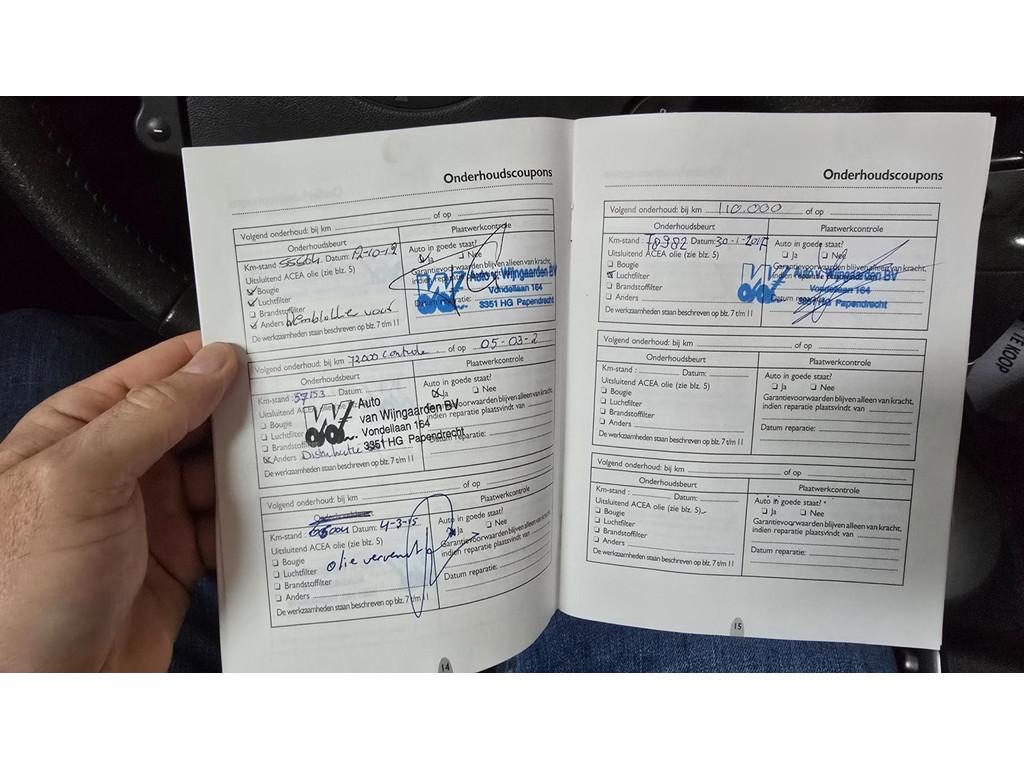 Onderhoudscoupons
Volgend onderhoud: bij km of op
Onderhoudsbeurt Plaatwerkcontrole
Km-stand : Datum: 12-10-12 Auto in goede staat?
Uitsluitend ACEA olie (zie blz. 5) Ja Nee
Bougie Garantievoorwaarden blijven alleen van kracht,
Luchtfilter
Brandstoffilter Datum reparatie:
Anders voor
De werkzaamheden staan beschreven op blz. 7 t/m 11
Auto v. Wijngaarden BV
Vondellaan 164
3351 HG Papendrecht
Volgend onderhoud: bij km 72000 Controle of op 05-03-2
Onderhoudsbeurt Plaatwerkcontrole
Km-stand : 57153 Datum: Auto in goede staat?
Uitsluitend Ja Nee
Bougie Garantievoorwaarden blijven alleen van kracht,
Luchtfilter indien reparatie plaatsvindt van
Brandstoffilter Datum reparatie:
Anders Distributie
De werkzaamheden staan beschreven op blz. 7 t/m 11
Auto
van Wijngaarden BV
Vondellaan 164
3351 HG Papendrecht
Volgend onderhoud: bij km of op
Plaatwerkcontrole
Km-stand : Datum: 4-3-15 Auto in goede staat?
Uitsluitend ACEA olie (zie blz. 5) Ja Nee
Bougie olie ververst Garantievoorwaarden blijven alleen van kracht,
Luchtfilter indien reparatie plaatsvindt van
Brandstoffilter Datum reparatie:
Anders
De werkzaamheden staan beschreven op blz. 7 t/m 11
14
Onderhoudscoupons
Volgend onderhoud: bij km 110.000 of op
Onderhoudsbeurt Plaatwerkcontrole
Km-stand : 78982 Datum: 30-1-2017 Auto in goede staat?
Uitsluitend ACEA olie (zie blz. 5) Ja Nee
Bougie Garantievoorwaarden blijven alleen van kracht,
Luchtfilter
Brandstoffilter
Anders Datum reparatie:
De werkzaamheden staan beschreven op blz. 7 t/m 11
Auto v. Wijngaarden BV
Vondellaan 164
3351 HG Papendrecht
Volgend onderhoud: bij km of op
Onderhoudsbeurt Plaatwerkcontrole
Km-stand : Datum: Auto in goede staat?
Uitsluitend ACEA olie (zie blz. 5) Ja Nee
Bougie Garantievoorwaarden blijven alleen van kracht,
Luchtfilter indien reparatie plaatsvindt van
Brandstoffilter
Anders Datum reparatie:
De werkzaamheden staan beschreven op blz. 7 t/m 11
Volgend onderhoud: bij km of op
Onderhoudsbeurt Plaatwerkcontrole
Km-stand : Datum: Auto in goede staat?
Uitsluitend ACEA olie (zie blz. 5) Ja Nee
Bougie Garantievoorwaarden blijven alleen van kracht,
Luchtfilter indien reparatie plaatsvindt van
Brandstoffilter
Anders Datum reparatie:
De werkzaamheden staan beschreven op blz. 7 t/m 11
15
TE KOOP